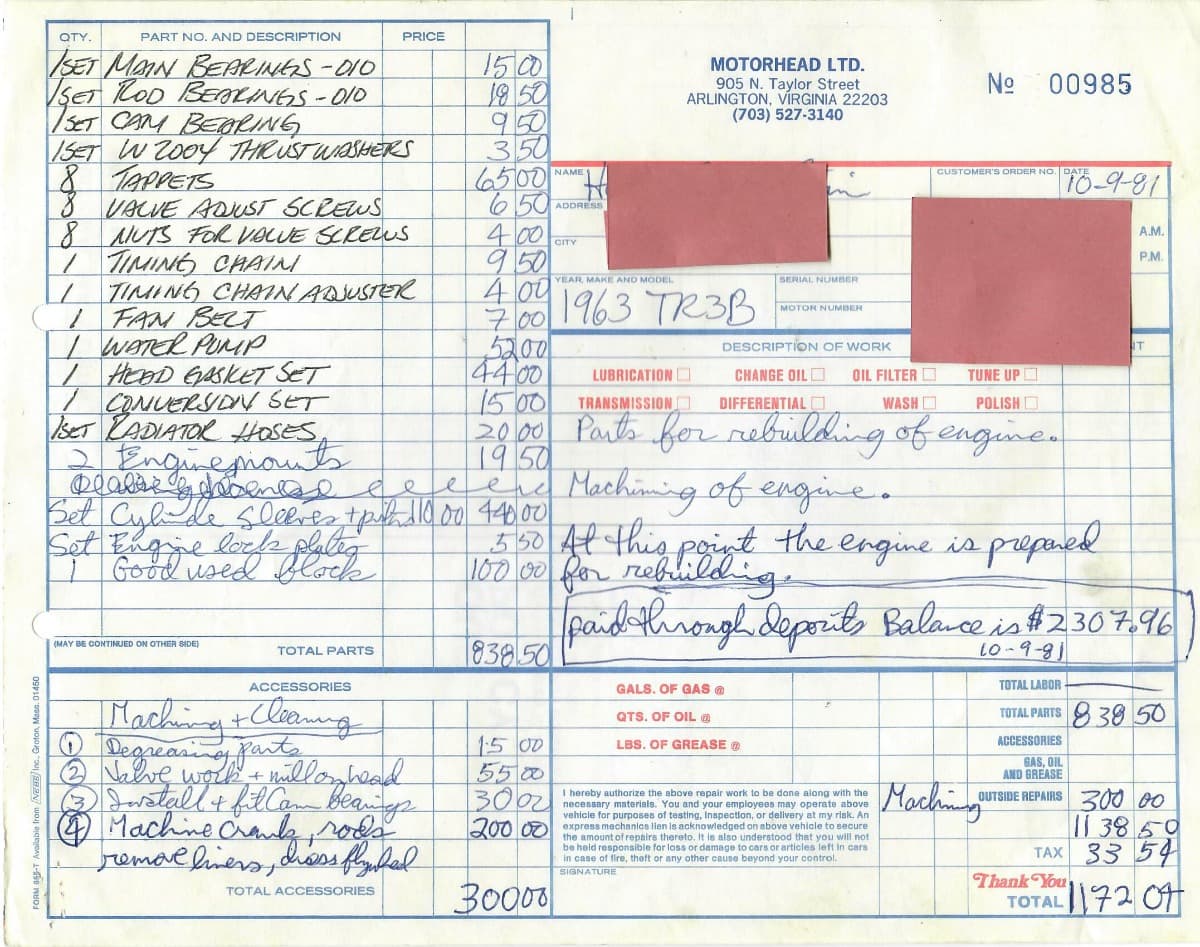 QTY. PART NO. AND DESCRIPTION PRICE
1SET MAIN BEARINGS -010 15 00
1SET ROD BEARINGS -010 18 50
1SET CAM BEARING 9 50
1SET W 2004 THRUSTWASHERS 3 50
8 TAPPETS 65 00
8 VALVE ADJUST SCREWS 6 50
8 NUTS FOR VALVE SCREWS 4 00
1 TIMING CHAIN 9 50
1 TIMING CHAIN ADJUSTER 4 00
1 FAN BELT 7 00
1 WATER PUMP 52 00
1 HEAD GASKET SET 44 00
1 CONVERSION SET 15 00
1SET RADIATOR HOSES 20 00
2 Engine mounts 19 50
Set Sleeves + 110 00 440 00
Set Engine lock plates 5 50
1 Good used block 100 00
(MAY BE CONTINUED ON OTHER SIDE) TOTAL PARTS 838 50
ACCESSORIES
Machining + Cleaning
1 Degreasing parts 15 00
2 Valve work + mill on head 55 00
3 Install + fit Cam bearings 30 00
4 Machine Crank, rods 200 00
remove liners, dress flywheel
TOTAL ACCESSORIES 300 00
FORM 855-T Available from NEBS Inc., Groton, Mass. 01450
MOTORHEAD LTD.
905 N. Taylor Street
ARLINGTON, VIRGINIA 22203
(703) 527-3140
No 00985
NAME H in
CUSTOMER'S ORDER NO. DATE 10-9-81
ADDRESS
A.M.
CITY
P.M.
YEAR, MAKE AND MODEL 1963 TR3B
SERIAL NUMBER
MOTOR NUMBER
DESCRIPTION OF WORK NT
LUBRICATION CHANGE OIL OIL FILTER TUNE UP
TRANSMISSION DIFFERENTIAL WASH POLISH
Parts for rebuilding of engine.
Machining of engine.
At this point the engine is prepared
for rebuilding.
paid through deposits Balance is $2307.96
10-9-81
GALS. OF GAS @ TOTAL LABOR
QTS. OF OIL @ TOTAL PARTS 838 50
LBS. OF GREASE @ ACCESSORIES
GAS, OIL
AND GREASE
I hereby authorize the above repair work to be done along with the
necessary materials. You and your employees may operate above
vehicle for purposes of testing, inspection, or delivery at my risk. An
express mechanics lien is acknowledged on above vehicle to secure
the amount of repairs thereto. It is also understood that you will not
be held responsible for loss or damage to cars or articles left in cars
in case of fire, theft or any other cause beyond your control.
SIGNATURE
Machining OUTSIDE REPAIRS 300 00
1138 50
TAX 33 54
Thank You
TOTAL 1172 04